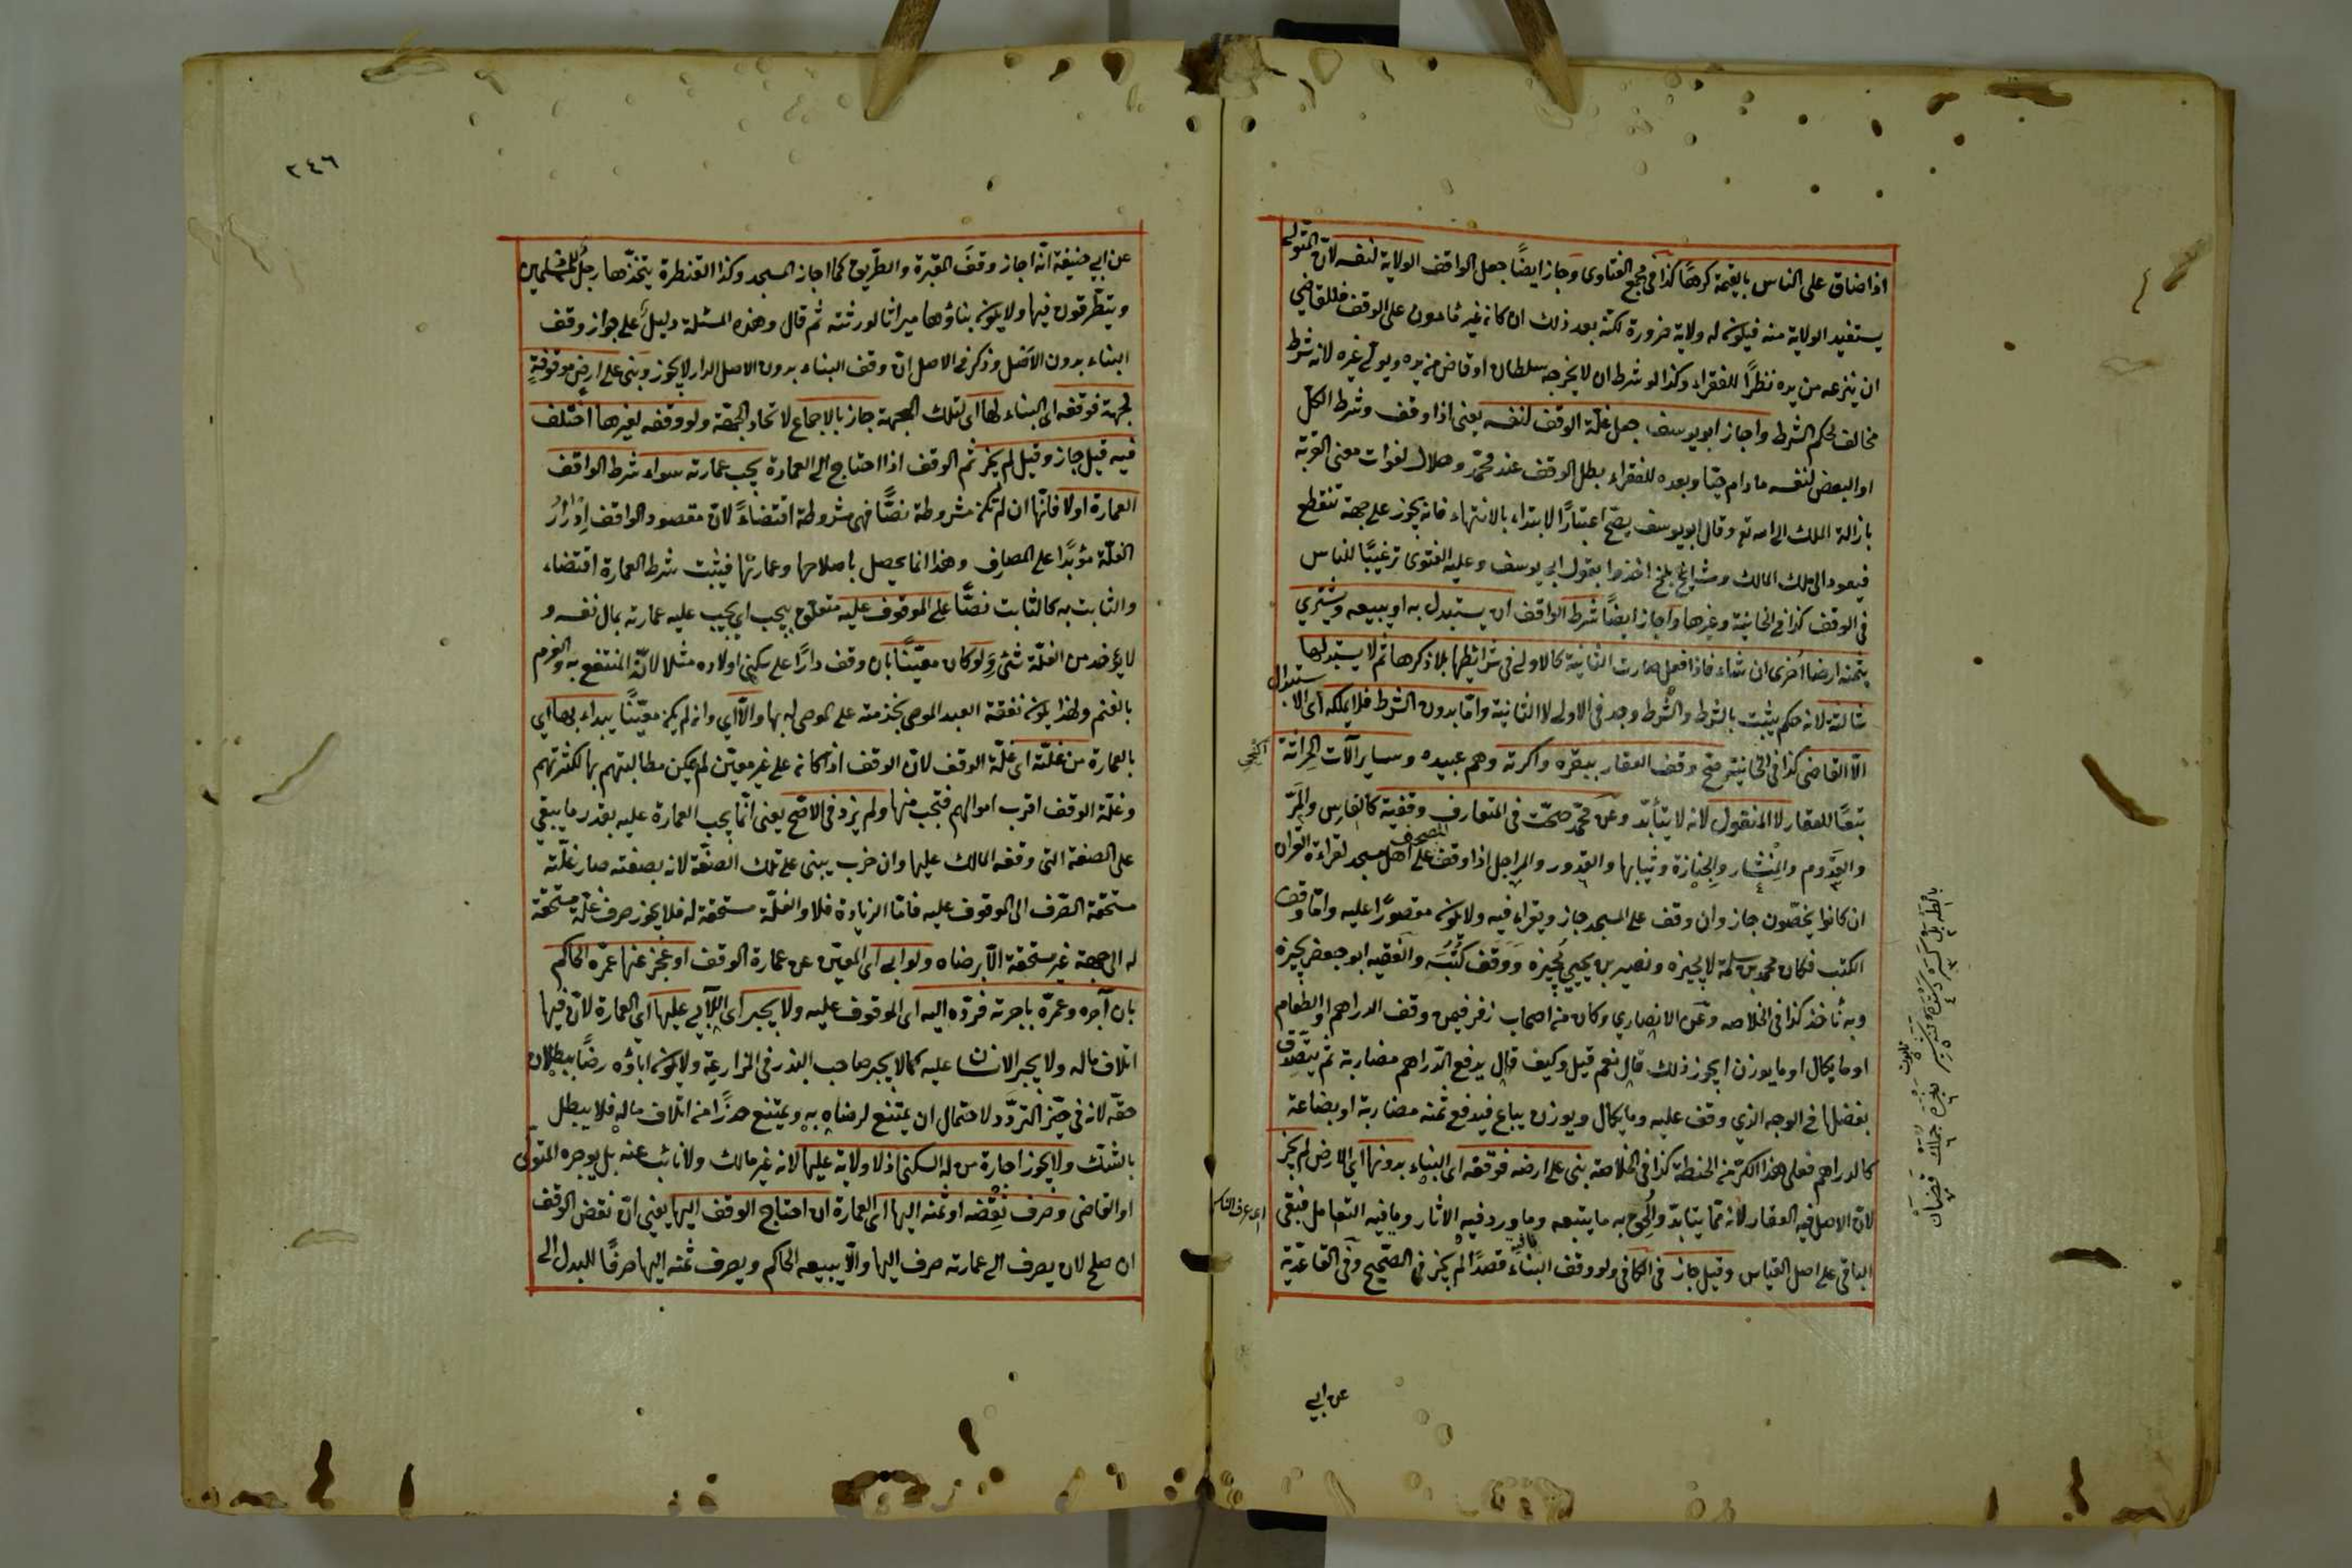 اذا ضاق على الناس بالقيمة كرها كذا في مجمع الفتاوى وجاز ايضًا جعل الواقف الولاية لنفسه لان المتولى
يستفيد الولاية منه فيكون له ولاية ضرورة لكنه بعد ذلك ان كان غير مأمون على الوقف فللقاضي
ان ينزعه من يده نظرًا للفقراء وكذا لو شرط ان لا يخرجه سلطان او قاض من يده ويولي غيره لانه شرط
مخالف لحكم الشرط واجاز ابو يوسف جعل غلّة الوقف لنفسه يعني اذا وقف وشرط الكلّ
او البعض لنفسه ما دام حيّا وبعده للفقراء بطل الوقف عند محمّد وهلال لفوات معنى القربة
بازالة الملك الى الله تع وقال ابو يوسف يصحّ اعتبارًا للابتداء بالانتهاء فانه يجوز على جهة تنقطع
فيعود الى ملك المالك ومشايخ بلخ اخذوا بقول ابي يوسف وعليه الفتوى ترغيبًا للناس
في الوقف كذا في الخانية وغيرها واجاز ايضًا شرط الواقف ان يستبدل به او يبيعه ويشتري
بثمنه ارضا اخرى ان شاء فاذا فعل صارت الثانية كالاولى في شرائطها بلا ذكرها ثم لا يستبدلها
ثالثة لانه حكم يثبت بالشرط والشرط وجد في الاولى لا الثانية وامّا بدون الشرط فلا يملكه اى الاستبدال
الّا القاضي كذا في الخانية وصح وقف العقار ببقره واكرته وهم عبيده وساير آلات الحراثة
تبعًا للعقار لا المنقول لانه لا يتأبّد وعن محمّد صحّت في المتعارف وقفيته كالفاس والمَرّ
والقدوم والمنشار والجنازة وثيابها والقدور والمراجل اذا وقف المصحف على اهل مسجد لقراءة القران
ان كانوا يحصّون جاز وان وقف على المسجد جاز ويقراء فيه ولا يكون مقصورًا عليه وامّا وقف
الكتب فكان محمد بن سلمة لا يجيزه ونصير بن يحيى يُجيزه وَوَقف كُتُبَه والفقيه ابو جعفر يجيزه
وبه نأخذ كذا في الخلاصه وعن الانصاري وكان من اصحاب زفر فيمن وقف الدراهم او الطعام
او ما يكال او ما يوزن ايجوز ذلك قال نعم قيل وكيف قال يدفع الدّراهم مضاربة ثم يتصدّق
بفضلها في الوجه الذي وقف عليه وما يكال ويوزن يباع فيدفع ثمنه مضاربة او بضاعة
كالدراهم فعلى هذا الكرّ من الحنطة كذا في الخلاصة بنى على ارضه فوقفه اى البناء بدونها اي الارض لم يجز
لان الاصل فيه العقار لانه ممّا يتابّد والحق به ما يتبعه وما ورد فيه الاثار وما فيه التعامل فبقي
الباقي على اصل القياس وقيل جاز في الكافي ولو وقف البناء قصدًا لم يجز في الصّحيح وفي القاعديّة
عن ابي
٢٤٦
عن ابي حنيفة انّه اجاز وقفَ المقبرة والطّريق كما اجاز المسجد وكذا القنطرة يتخذّها رجلٌ للمسلمين
ويتطرّقون فيها ولا يكون بناؤها ميراثا لورثته ثم قال وهذه المسئلة دليلٌ على جواز وقف
البناء بدون الاصل وذكر في الاصل ان وقف البناء بدون الاصل الدار لا يجوز وبنى على ارض موقوفةٍ
لجهة فوقفه اى البناء لها اى لتلك الجهة جاز بالاجماع لاتحاد الجهة ولو وقفه لغيرها اختلف
فيه قيل جاز وقيل لم يجز ثم الوقف اذا احتاج الى العمارة يجب عمارته سواء شرط الواقف
العمارة اولا فانّها ان لم تكن مشروطة نصًّا فهى مشروطة اقتضاءً لان مقصود الواقف ادرارُ
الغلّة مؤبّدًا على المصارف وهذا انما يحصل باصلاحها وعمارتها فيثبت شرط العمارة اقتضاء
والثابت به كالثابت نصًّا على الموقوف عليه متعلّق بيجب اى يجب عليه عمارته بمال نفسه و
لا يؤخذ من الغلّة شئ ولو كان معيّنًا بان وقف دارًا على سكنى اولاده مثلا لانّه المنتفع به والغرم
بالغنم ولهذا يكون نفقة العبد الموصى بخدمته على الموصى له بها والّا اي وان لم يكن معيّنًا يبداء بها اي
بالعمارة من غلّته اى غلّة الوقف لان الوقف اذا كان على غير معيّن لم يمكن مطالبتهم بها لكثرتهم
وغلّة الوقف اقرب اموالهم فتجب منها ولم يزد في الاصحّ يعنى انّما يجب العمارة عليه بقدر ما يبقي
على الصفة التى وقفه المالك عليها وان خرب يبنى على تلك الصفّة لانه بصفته صار غلّته
مستحقة الصّرف الى الموقوف عليه فامّا الزيادة فلا والغلّة مستحقة له فلا يجوز صرف غلّة مستحقة
له الى جهة غير مستحقة الّا برضاه ولو ابى اى المعيّن عن عمارة الوقف او عجز عنها عمّره الحاكم
بان آجره وعمّره باجرته فردّه اليه اى الموقوف عليه ولا يجبر اى الآبي عليها اي العمارة لان فيها
اتلاف ماله ولا يجبر الانسان عليه كما لا يجبر صاحب البذر في المزارعة ولا يكون اباؤه رضًا ببطلان
حقّه لانه في حيّز التردّد لاحتمال ان يمتنع لرضاه به ويمتنع حذرًا من اتلاف ماله فلا يبطل
بالشك ولا يجوز اجارة من له السكنى اذ لا ولاية عليها لانه غير مالك ولا نائب عنه بل يوجره المتولّى
او القاضي وصرف نقضه او ثمنه اليها اى العمارة ان احتاج الوقف اليها يعني انّ نقض الوقف
ان صلح لان يصرف الى عمارته صرف اليها والّا يبيعه الحاكم ويصرف ثمنه اليها صرفًا للبدل الى